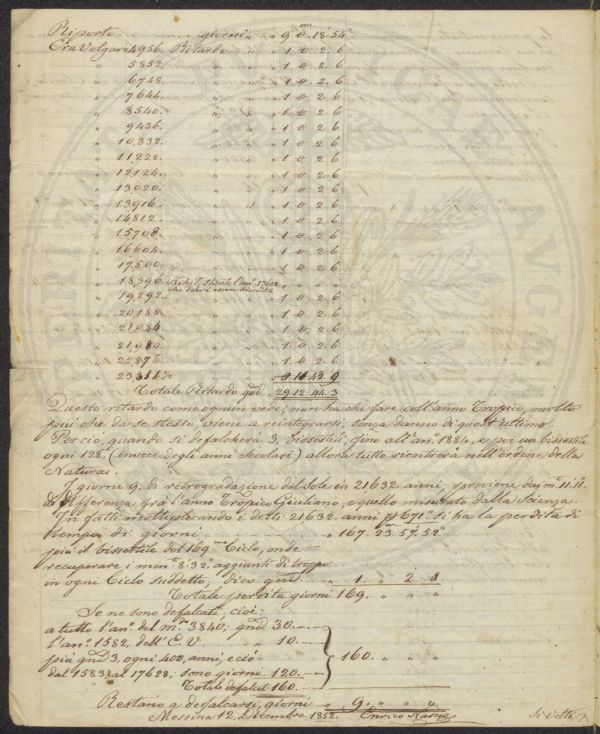 Riporto ......... giorni " " 9. 0. 18. 54"
Era Volgare 4956. Ritardo " " 1. 0. 2. 6
" 5852. " " " 1. 0. 2. 6
" 6748. " " " 1. 0. 2. 6
" 7644. " " " 1. 0. 2. 6
" 8540. " " " 1. 0. 2. 6
" 9436. " " " 1. 0. 2. 6
" 10,332. " " " 1. 0. 2. 6
" 11,228. " " " 1. 0. 2. 6
" 12,124. " " " 1. 0. 2. 6
" 13020. " " " 1. 0. 2. 6
" 13916. " " " 1. 0. 2. 6
" 14812. " " " 1. 0. 2. 6
" 15708. " " " 1. 0. 2. 6
" 16604. " " " 1. 0. 2. 6
" 17500. " " " 1. 0. 2. 6
" 18,396. Nihil, l'an.° 17628
" 19,292. " " " 1. 0. 2. 6
" 20188. " " " 1. 0. 2. 6
" 21,084. " " " 1. 0. 2. 6
" 21,980. " " " 1. 0. 2. 6
" 22876. " " " 1. 0. 2. 6
" 0. 11. 43. 9
Totale Ritardo gni " 29. 12. 44. 3
Questo ritardo come ognun vede, non ha che fare coll'anno Tropico, molto
più che da se stesso, viene a reintegrarsi, senza danno di quest'ultimo.
Perciò, quando si defalcherà 3, bissestili, fino all'an.° 1884, e poi un bissestile
ogni 128, (invece degli anni secolari) allora tutto rientrerà nell'ordine della
Natura.
I giorni 9. di retrogradazione del Sole in 21632 anni, proviene dai m.ti 11.11"
di differenza, fra l'anno Tropico Giuliano, e quello misurato dalla Scienza.
In fatti moltiplicando i detti 21632. anni p 671" si ha la perdita di
tempo di giorni " 167. 23. 57. 52"
più il bissestile del 169.mo Ciclo, onde
recuperare i min.ti 8. 32" aggiunti di troppo
in ogni Ciclo suddetto, dico gni " 1. " 2. 8
Totale perdita giorni 169. " " "
Se ne sono defalcati, cioè:
a tutto l'an.° del m.do 3840; gni 30. —
l'an.° 1582, dell'E. V. " 10. —
più gni 3, ogni 400, anni, cioè
dal 1583 al 17628, sono giorni 120. — 160. " " "
Totale defalcati 160. —
Restano a defalcarsi, giorni " 9. " " "
Messina 12. Dicembre 1852. Enrico
Si volti